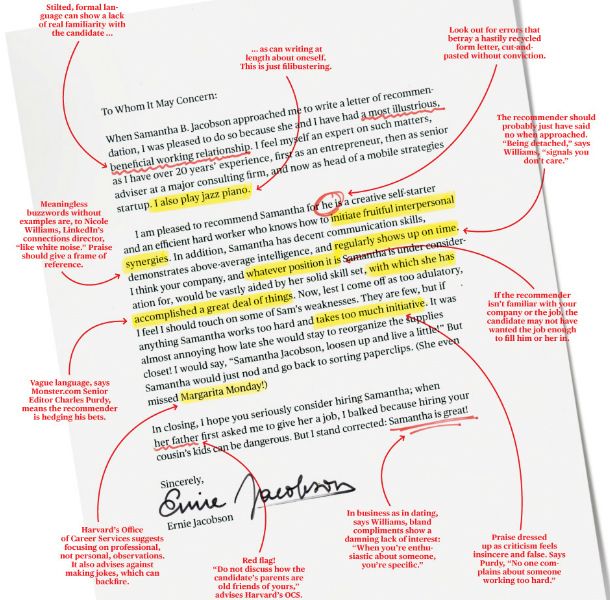 Stilted, formal lan-
guage can show a lack
of real familiarity with
the candidate ...
... as can writing at
length about oneself.
This is just filibustering.
Look out for errors that
betray a hastily recycled
form letter, cut-and-
pasted without conviction.
The recommender should
probably just have said
no when approached.
“Being detached,” says
Williams, “signals you
don’t care.”
Meaningless
buzzwords without
examples are, to Nicole
Williams, LinkedIn’s
connections director,
“like white noise.” Praise
should give a frame of
reference.
To Whom It May Concern:
When Samantha B. Jacobson approached me to write a letter of recommen-
dation, I was pleased to do so because she and I have had a most illustrious,
beneficial working relationship. I feel myself an expert on such matters,
as I have over 20 years’ experience, first as an entrepreneur, then as senior
adviser at a major consulting firm, and now as head of a mobile strategies
startup. I also play jazz piano.
I am pleased to recommend Samantha for he is a creative self-starter
and an efficient hard worker who knows how to initiate fruitful interpersonal
synergies. In addition, Samantha has decent communication skills,
demonstrates above-average intelligence, and regularly shows up on time.
I think your company, and whatever position it is Samantha is under consider-
ation for, would be vastly aided by her solid skill set, with which she has
accomplished a great deal of things. Now, lest I come off as too adulatory,
I feel I should touch on some of Sam’s weaknesses. They are few, but if
anything Samantha works too hard and takes too much initiative. It was
almost annoying how late she would stay to reorganize the supplies
closet! I would say, “Samantha Jacobson, loosen up and live a little!” But
Samantha would just nod and go back to sorting paperclips. (She even
missed Margarita Monday!)
In closing, I hope you seriously consider hiring Samantha; when
her father first asked me to give her a job, I balked because hiring your
cousin’s kids can be dangerous. But I stand corrected: Samantha is great!
Sincerely,
Ernie Jacobson
Ernie Jacobson
If the recommender
isn’t familiar with your
company or the job, the
candidate may not have
wanted the job enough
to fill him or her in.
Vague language, says
Monster.com Senior
Editor Charles Purdy,
means the recommender
is hedging his bets.
Harvard’s Office
of Career Services suggests
focusing on professional,
not personal, observations.
It also advises against
making jokes, which can
backfire.
Red flag!
“Do not discuss how the
candidate’s parents are
old friends of yours,”
advises Harvard’s OCS.
In business as in dating,
says Williams, bland
compliments show a
damning lack of interest:
“When you’re enthu-
siastic about someone,
you’re specific.”
Praise dressed
up as criticism feels
insincere and false. Says
Purdy, “No one com-
plains about someone
working too hard.”